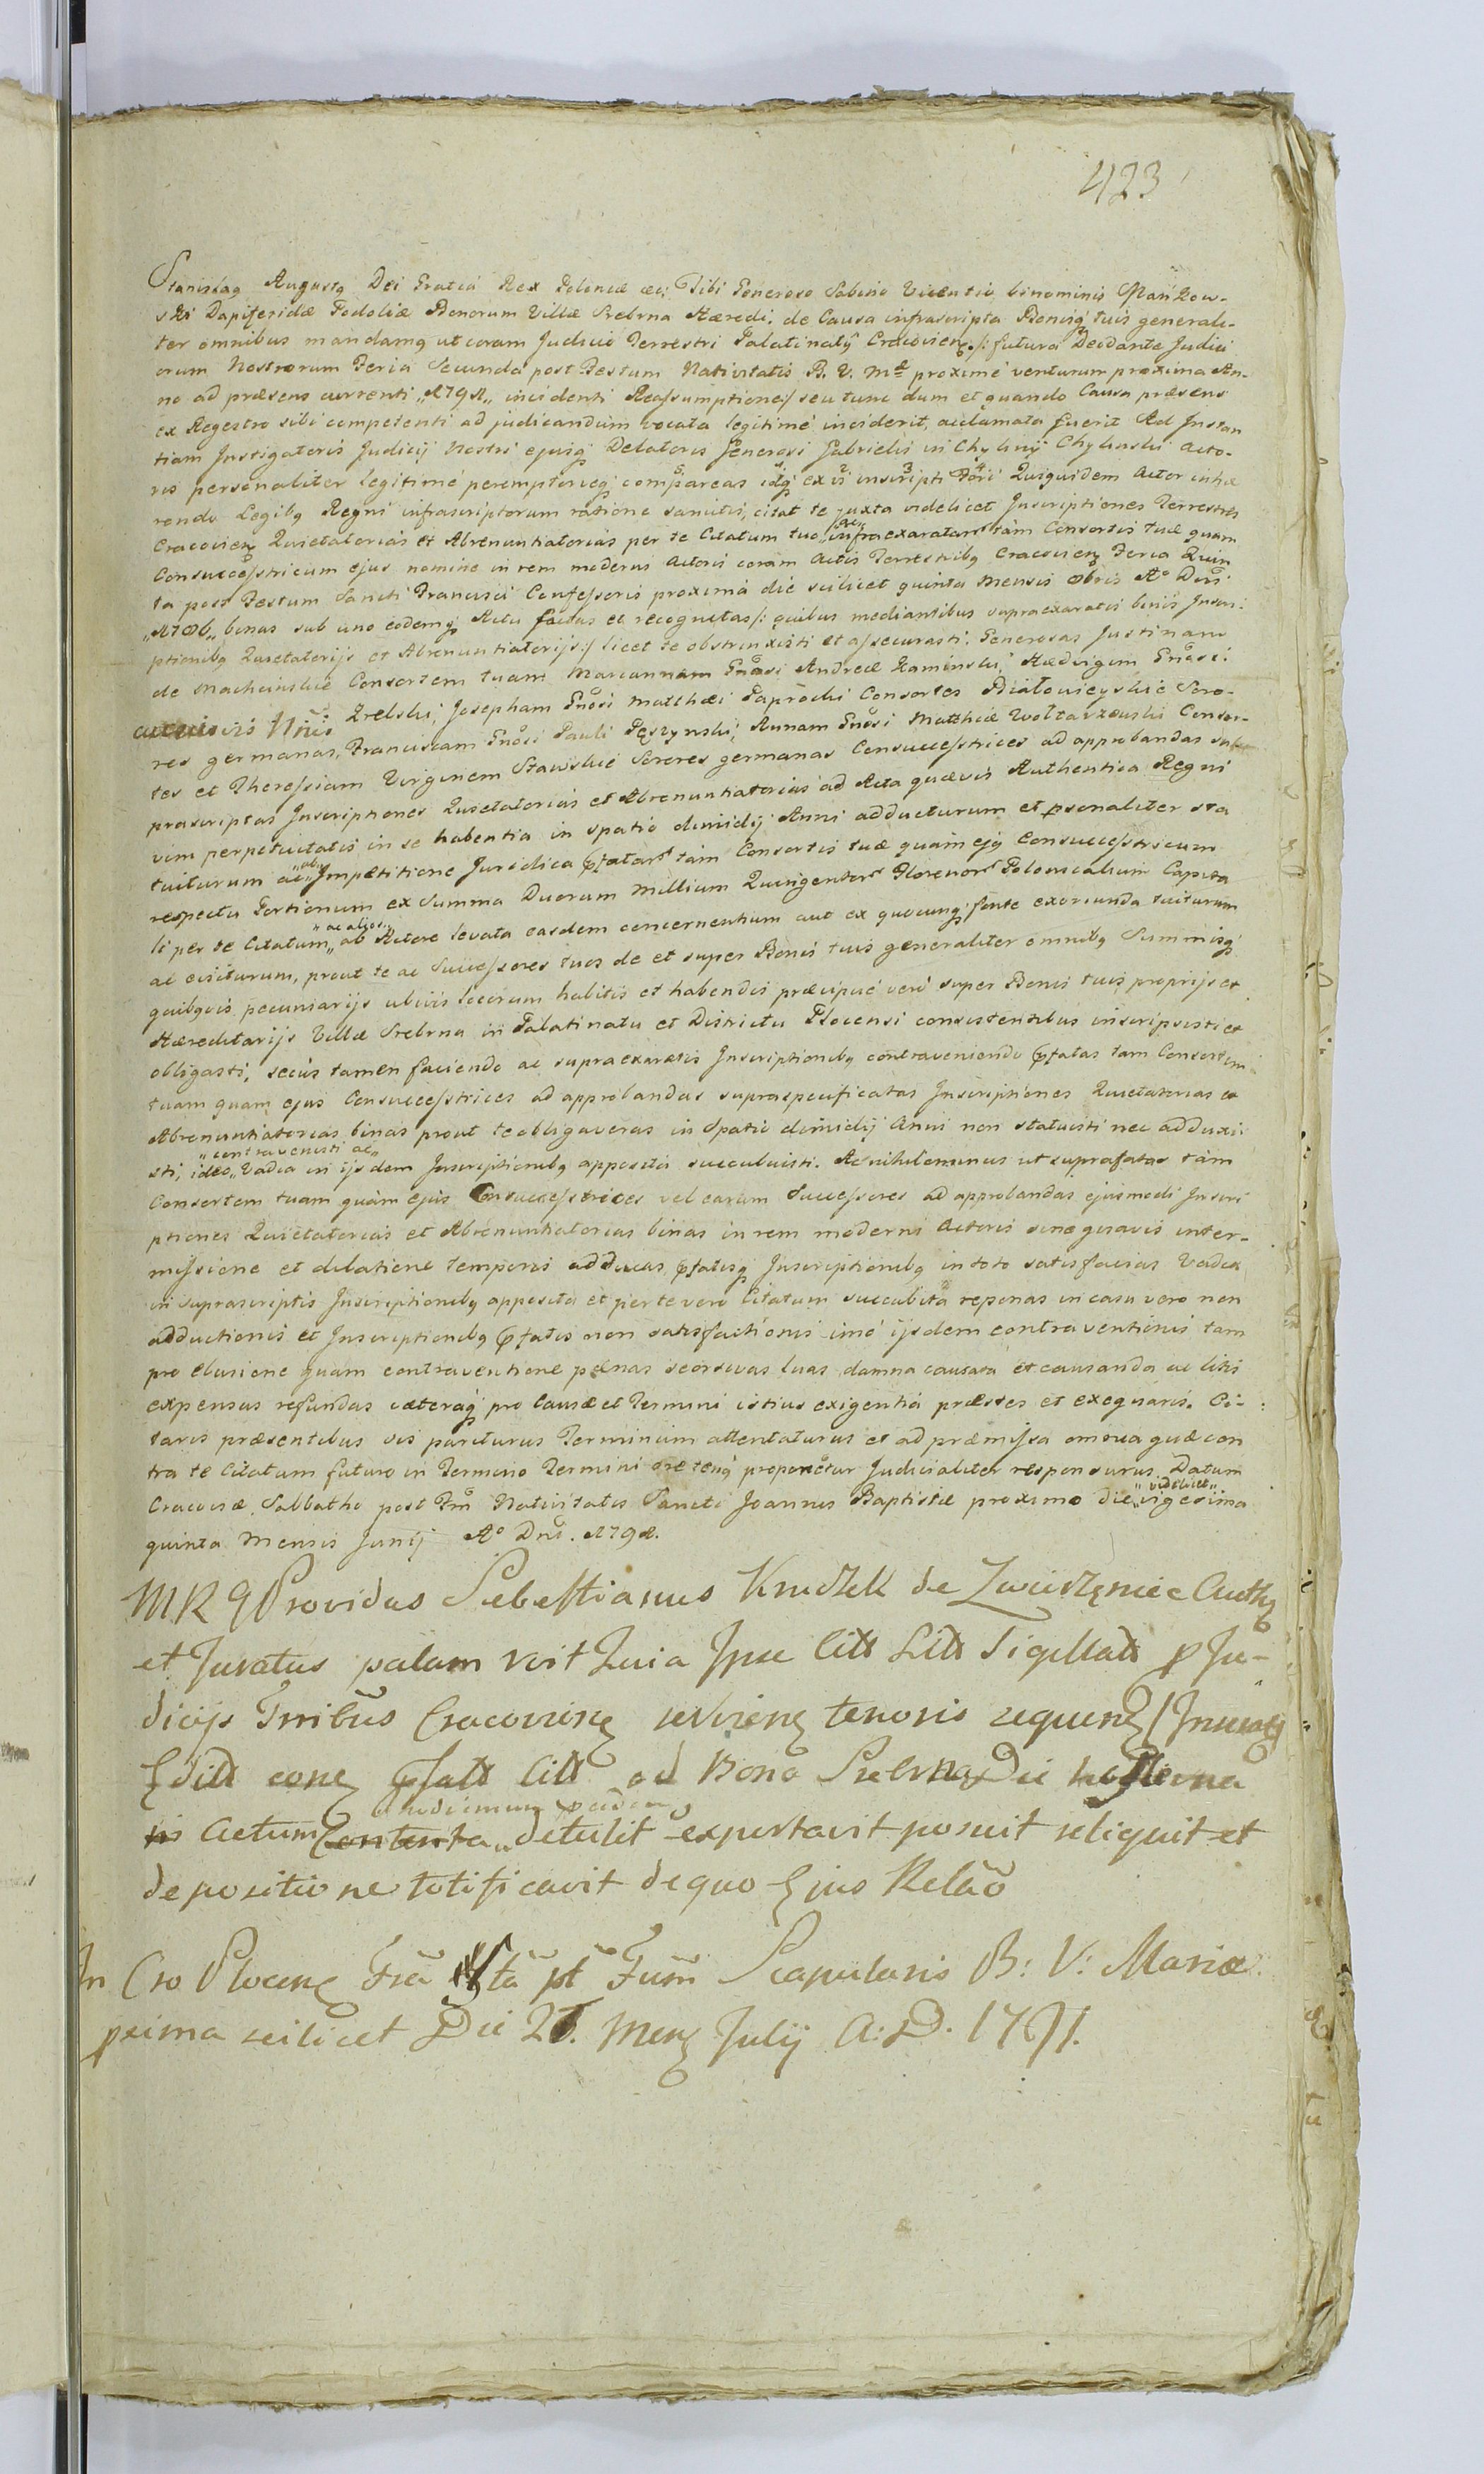 423
Stanislaꝯ Augustꝯ Dei Gratia Rex Poloniæ etc: Tibi Generoso Sabino Vicentio binominis Mańkow-
ski Dapiferidæ Podoliæ Bonorum Villæ Srebrna Hæredi. de Causa infrascripta Bonisq; tuis generali-
ter omnibus mandamꝯ ut coram Judicio Terrestri Palatinatꝯ Cracovien. /: futura Deo dante Judici
orum Nostrorum Feria Secunda post Festum Nativitatis B. V. Mæ proximé venturum proxima An-
no ad præsens currenti „1791„ incidenti Reassumptione:/ seu tunc dum et quando Causa præsens
ex Regestro sibi competenti ad judicandum vocata legitimé inciderit, acclamata fuerit Ad Instan
tiam Instigatoris Judicij Nostri ejusq; Delatoris Generosi Gabrielis in Chyliny Chylinski Acto-
ris personaliter legitimé peremptorieq; compareas idq; ex vi inscripti fori Quiquidem Actor inhæ
rendo Legibꝯ Regni infrascriptorum ratione sancitis, citat te juxta videlicet Inscriptiones Terrestres
Cracovien Quietatorias et Abrenuntiatorias per te Citatum tuo „ac„ infraexaratarꝯ tàm Consortis tuæ quam
Consuccestricum ejus nomine in rem moderni Actoris coram Actis Terrestribꝯ Cracovien Feria Quin
ta post Festum Sancti Francisci Confessoris proximá die scilicet quinta Mensis 8bris A° Dni
„1786„ binas sub uno eodemq; Actu factas et recognitas /: quibus mediantibus supraexaratis binis Inscri:
ptionibꝯ Quietatorijs et Abrenuntiatorijs:/ licet te obstrinxisti et assecurasti: Generosas Justinam
de Machcinskie Consortem tuam Mariannam Gnosi Andreæ Kaminski, Hedvigem Gnosi:
Zrelski, Josepham Gnosi Matthæi Paprocki Consortes Białowieyskie Soro-
res germanas, Franciscam Gnosi Pauli Pęszynski, Annam Gnosi Matthiæ Wołtarzewski Consor-
tes et Theressiam Virginem Stawskie Sorores germanas Consuccestrices ad approbandas
præscriptas Inscriptiones Quietatorias et Abrenuntiatorias ad Acta quævis Authentica Regni
vim perpetuitatis in se habentia in spatio dimidij Anni adducturum et personaliter sta
tuiturum ac „ab„ Impetitione Juridica pfatarꝯ tàm Consortis tuæ quàm ejꝯ Consuccestricum
respectu Portionum ex Summa Duorum Millium Quingentorꝯ Florenorꝯ Polonicalium Capita
li per te Citatum „ac alios„ ab Actore levata easdem concernentium aut ex quocunq; fonte exoriunda tuiturum
ac evicturum, prout te ac Successores tuos de et super Bonis tuis generaliter omnibꝯ Summisq;
quibꝯvis pecuniarijs ubivis locorum habitis et habendis præcipué veró super Bonis tuis proprijs et
Hæreditarijs Villæ Srebrna in Palatinatu et Districtu Plocensi consistentibus inscripsisti et
obligasti, secùs tamen faciendo ac supraexaratis Inscriptionibꝯ contraveniendo pfatas tam Consortem
tuam quam ejus Consuccestrices ad approbandas supraspecificatas Inscriptiones Quietatorias et
Abrenuntiatorias binas prout te obligaveras in spatio dimidij Anni non statuisti nec adduxi
sti, ideo „contravenisti ac„ Vadia in ijsdem Inscriptionibꝯ apposita succubuisti. Ac nihilominus ut suprafatas tàm
Consortem tuam quàm ejus Consuccestrices vel earum Successores ad approbandas ejusmodi Inscri
ptiones Quietatorias et Abrenuntiatorias binas in rem moderni Actoris sine quavis inter-
missione et dilatione temporis adducas, pfatisq; Inscriptionibꝯ in toto satisfacias Vadia
in suprascriptis Inscriptionibꝯ apposita et per te vero Citatum succubita reponas in casu vero non
adductionis et Inscriptionibꝯ pfatis non satisfactionis imó ijsdem contraventionis tam
pro elusione quam contraventione pænas seorsivas luas damna causata et causanda ac litis
expensas refundas cæteraq; pro Causæ et Termini istius exigentiá præstes et exequaris. Ci-
taris præsentibus sis pariturus Terminum attentaturus et ad præmissa omnia quæ con
tra te Citatum futuro in Termino Termini ore tenꝯ proponetur Judicialiter responsurus. Datum
Cracoviæ Sabbatho post Fm Nativitatis Sancti Joannis Baptistæ proximo die „videlicet„ vigesima
quinta Mensis Junij A° Dni. 1791.
MR Q Providus Sebestianus Krudzek de Zwierzęniec Auth
et Juratus palam Ipse Citt Litt Sigillatt p Ju-
dicijs Trribus Cracovien servien tenoris sequen
pfatt Citt ad Bona Srebrna Die hesterna
in Actum detulit exportavit posuit reliquit et
depositione totificavit de quo Ejus Relao
In Cro Plocen Fria pt Fum Scapularis B: V: Mariæ
prima scilicet Die 21. Mens Julij A: D. 1791.